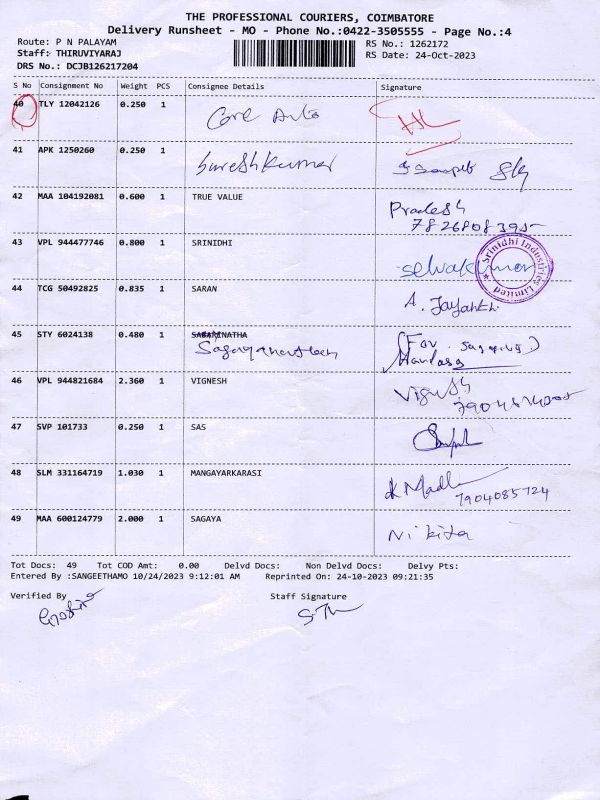 THE PROFESSIONAL COURIERS, COIMBATORE
Delivery Runsheet - MO - Phone No.:0422-3505555 - Page No.:4
Route: P N PALAYAM RS No.: 1262172
Staff: THIRUVIYARAJ RS Date: 24-Oct-2023
DRS No.: DCJB126217204
S No Consignment No Weight PCS Consignee Details Signature
40 TLY 12042126 0.250 1 Core Auto
41 APK 1250260 0.250 1 Sureshkumar
42 MAA 104192081 0.600 1 TRUE VALUE Pradesh
43 VPL 944477746 0.800 1 SRINIDHI Selvakumar
Srinidhi Industries Limited
44 TCG 50492825 0.835 1 SARAN A. Jayanth
45 STY 6024138 0.480 1
(For
46 VPL 944821684 2.360 1 VIGNESH Vignesh
47 SVP 101733 0.250 1 SAS
48 SLM 331164719 1.030 1 MANGAYARKARASI
7904085724
49 MAA 600124779 2.000 1 SAGAYA Nikita
Tot Docs: 49 Tot COD Amt: 0.00 Delvd Docs: Non Delvd Docs: Delvy Pts:
Entered By :SANGEETHAMO 10/24/2023 9:12:01 AM Reprinted On: 24-10-2023 09:21:35
Verified By Staff Signature